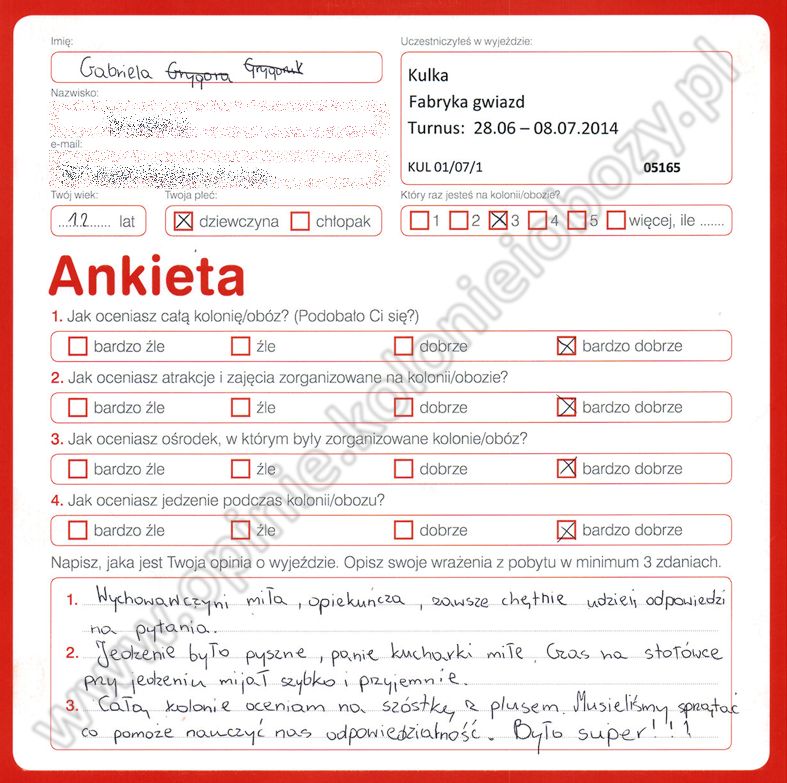 Imię:
Gabriela
Uczestniczyłeś w wyjeździe:
Kulka
Fabryka gwiazd
Turnus: 28.06 – 08.07.2014
KUL 01/07/1 05165
Nazwisko:
e-mail:
Twój wiek:
12 lat
Twoja płeć:
dziewczyna chłopak
Który raz jesteś na kolonii/obozie?
1 2 3 4 5 więcej, ile .......
Ankieta
1. Jak oceniasz całą kolonię/obóz? (Podobało Ci się?)
bardzo źle źle dobrze bardzo dobrze
2. Jak oceniasz atrakcje i zajęcia zorganizowane na kolonii/obozie?
bardzo źle źle dobrze bardzo dobrze
3. Jak oceniasz ośrodek, w którym były zorganizowane kolonie/obóz?
bardzo źle źle dobrze bardzo dobrze
4. Jak oceniasz jedzenie podczas kolonii/obozu?
bardzo źle źle dobrze bardzo dobrze
Napisz, jaka jest Twoja opinia o wyjeździe. Opisz swoje wrażenia z pobytu w minimum 3 zdaniach.
1. Wychowawczyni miła, opiekuńcza, zawsze chętnie udzieli odpowiedzi
na pytania.
2. Jedzenie było pyszne, panie kucharki miłe. Czas na stołówce
przy jedzeniu mijał szybko i przyjemnie.
3. Całą kolonie oceniam na szóstkę z plusem. Musieliśmy sprzątać
co pomoże nauczyć nas odpowiedzialność. Było super!!!
www.opinie.kolonieiobozy.pl